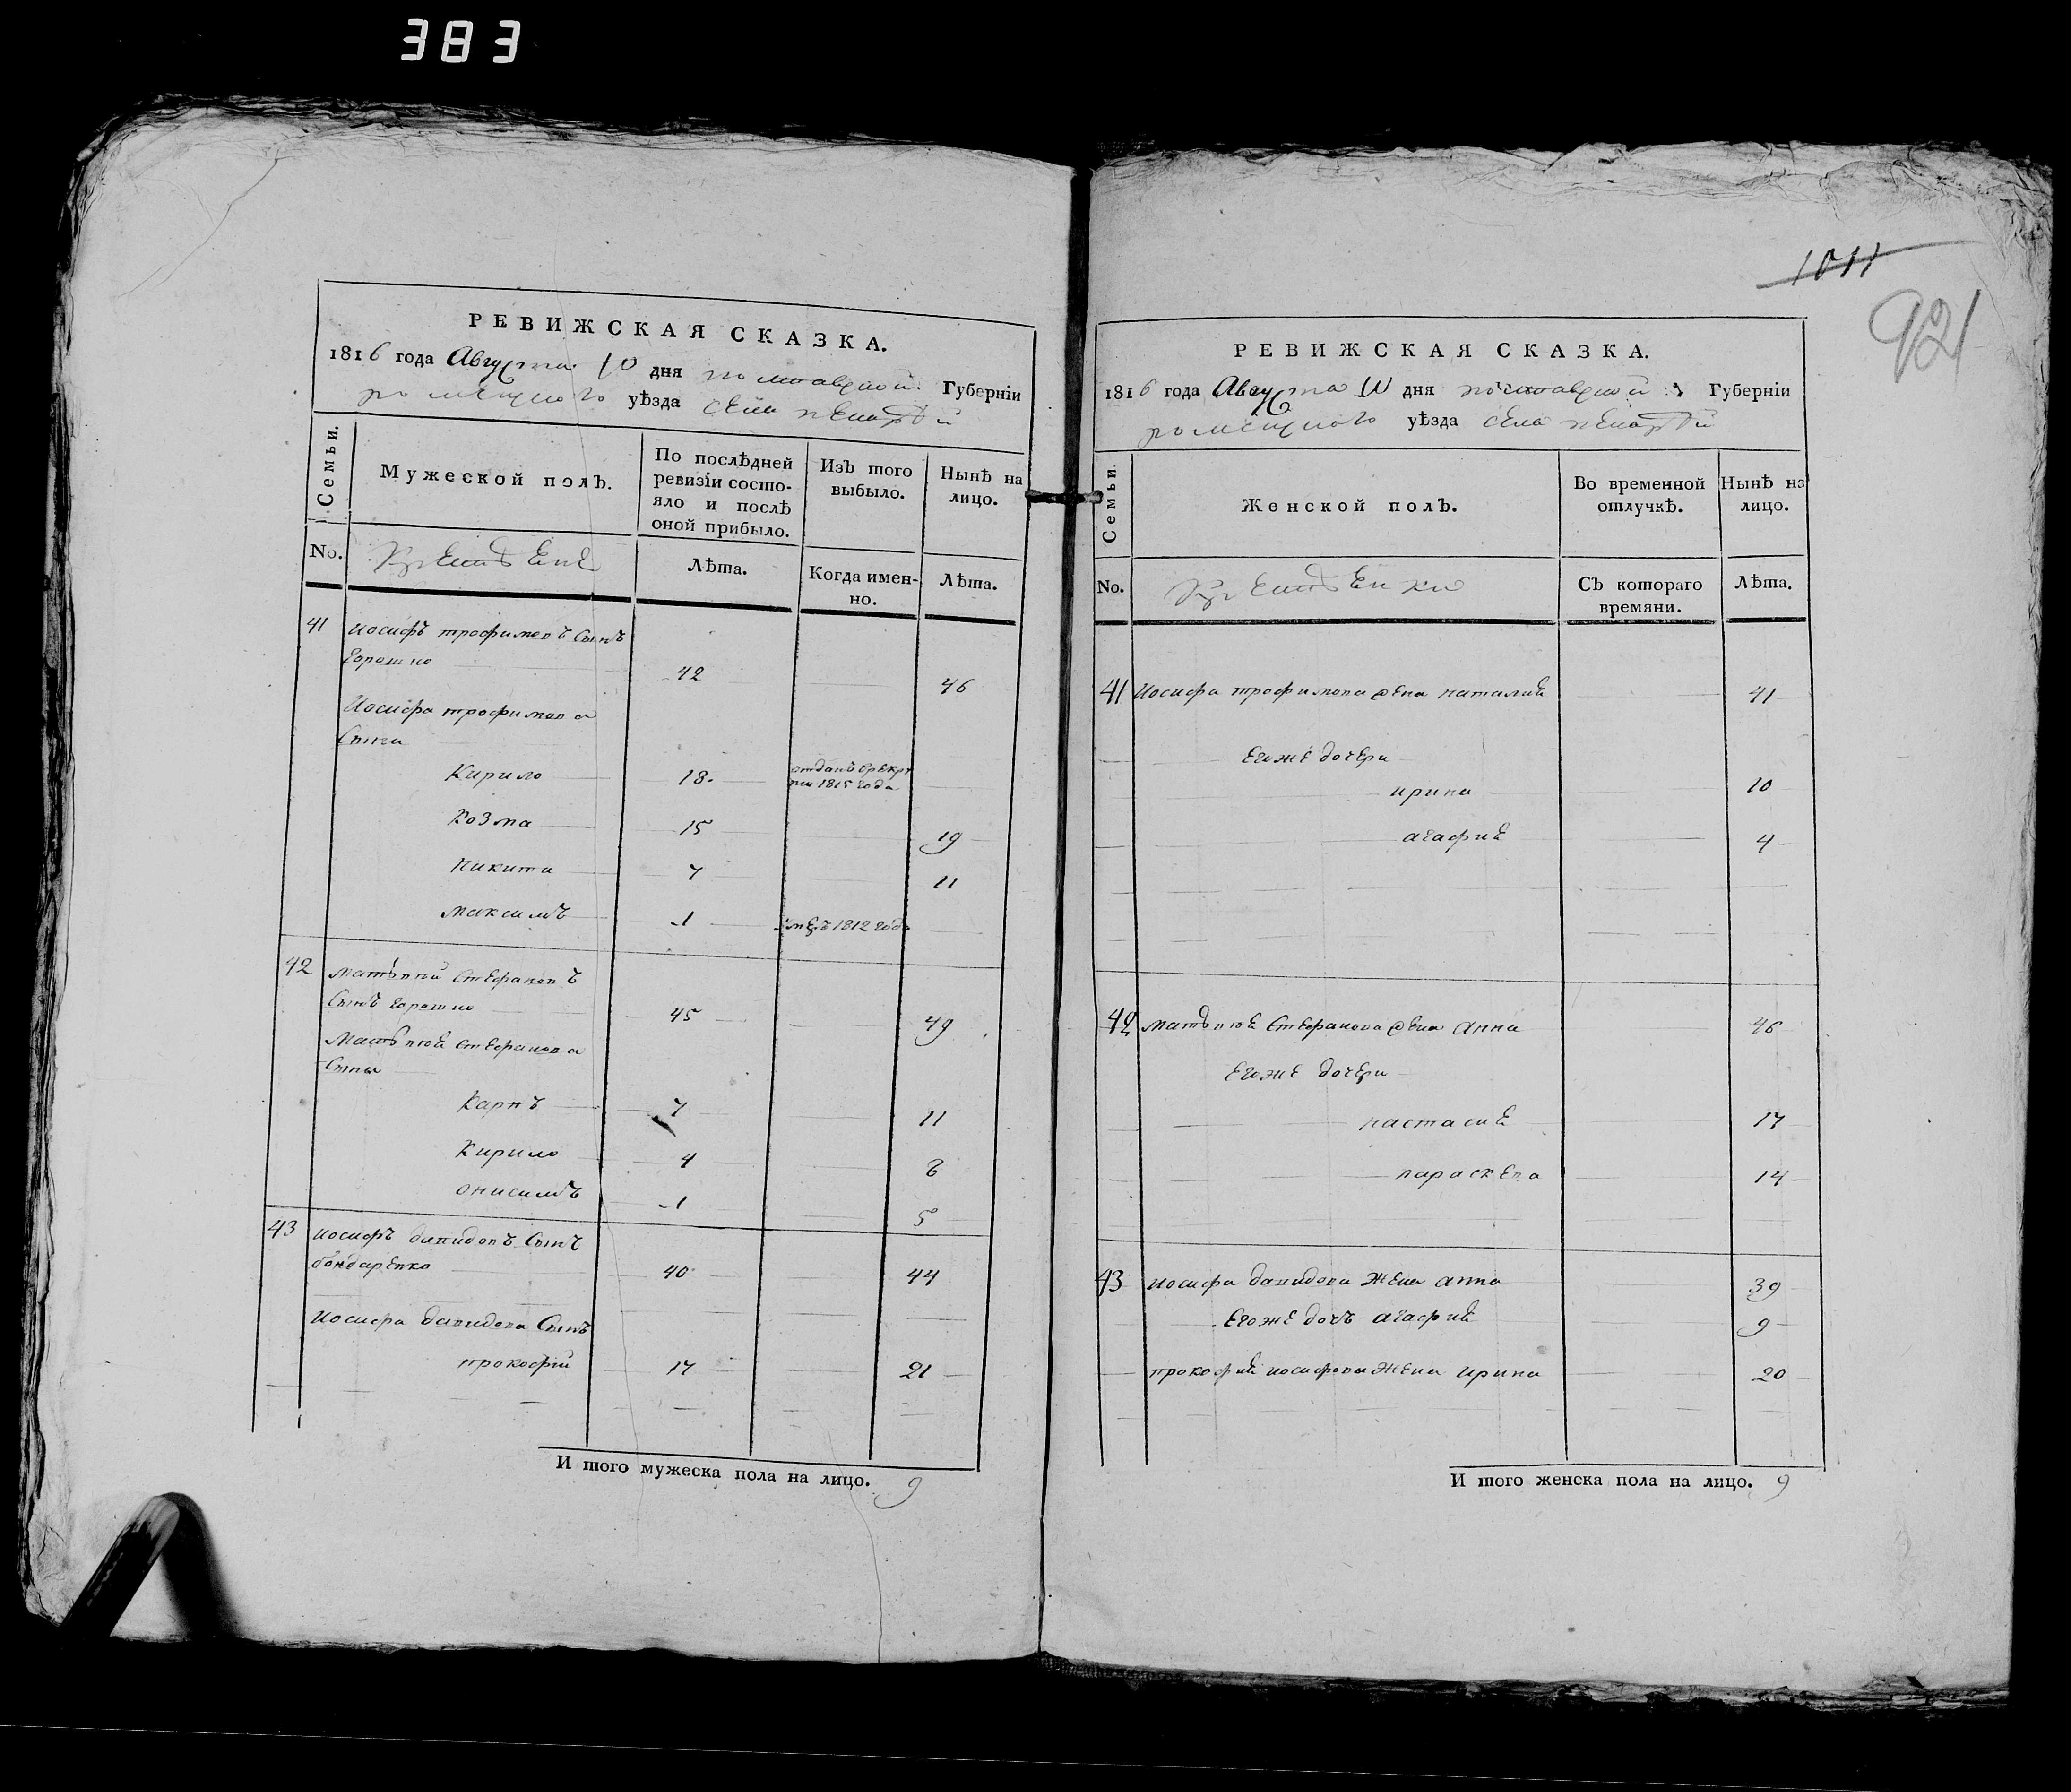 383
РЕВИЖСКАЯ СКАЗКА.
1816 года Августа 10 дня полтавской Губерніи
роменского уѣзда села
Семьи.
Мужеской полъ.
По послѣдней ревизіи состояло и послѣ оной прибыло.
Изъ того выбыло.
Нынѣ на лицо.
No.
Лѣта.
Когда именно.
Лѣта.
41 иосифъ трофимовъ сынъ
горошко 42 46
Иосифа трофимова
сыны
Кирило 18. отданъ врекруты 1815 года
Козма 15 19
никита 7 11
максимъ 1 1812 года
42 матъвѣй стефановъ
сынъ горошко 45 49
Матъвѣя стефанова
сыны
Карпъ 7 11
Кирило 4 8
онисимъ 1 5
43 иосифъ давидовъ сынъ
бондаренко 40 44
иосифа давидова сынъ
прокофій 17 21
И того мужеска пола на лицо. 9
1011
921
РЕВИЖСКАЯ СКАЗКА.
1816 года Августа 10 дня полтавской Губерніи
роменского уѣзда села
Семьи.
Женской полъ.
Во временной отлучкѣ.
Нынѣ на лицо.
No.
Съ котораго времяни.
Лѣта.
41 Иосифа трофимова жена наталия 41
егоже дочери
ирина 10
агафия 4
42 матъвѣя стефанова жена анна 46
егоже дочери
настасия 17
параскева 14
43 иосифа давидова жена анна 39
егоже дочъ агафия 9
прокофия иосифова жена ирина 20
И того женска пола на лицо. 9